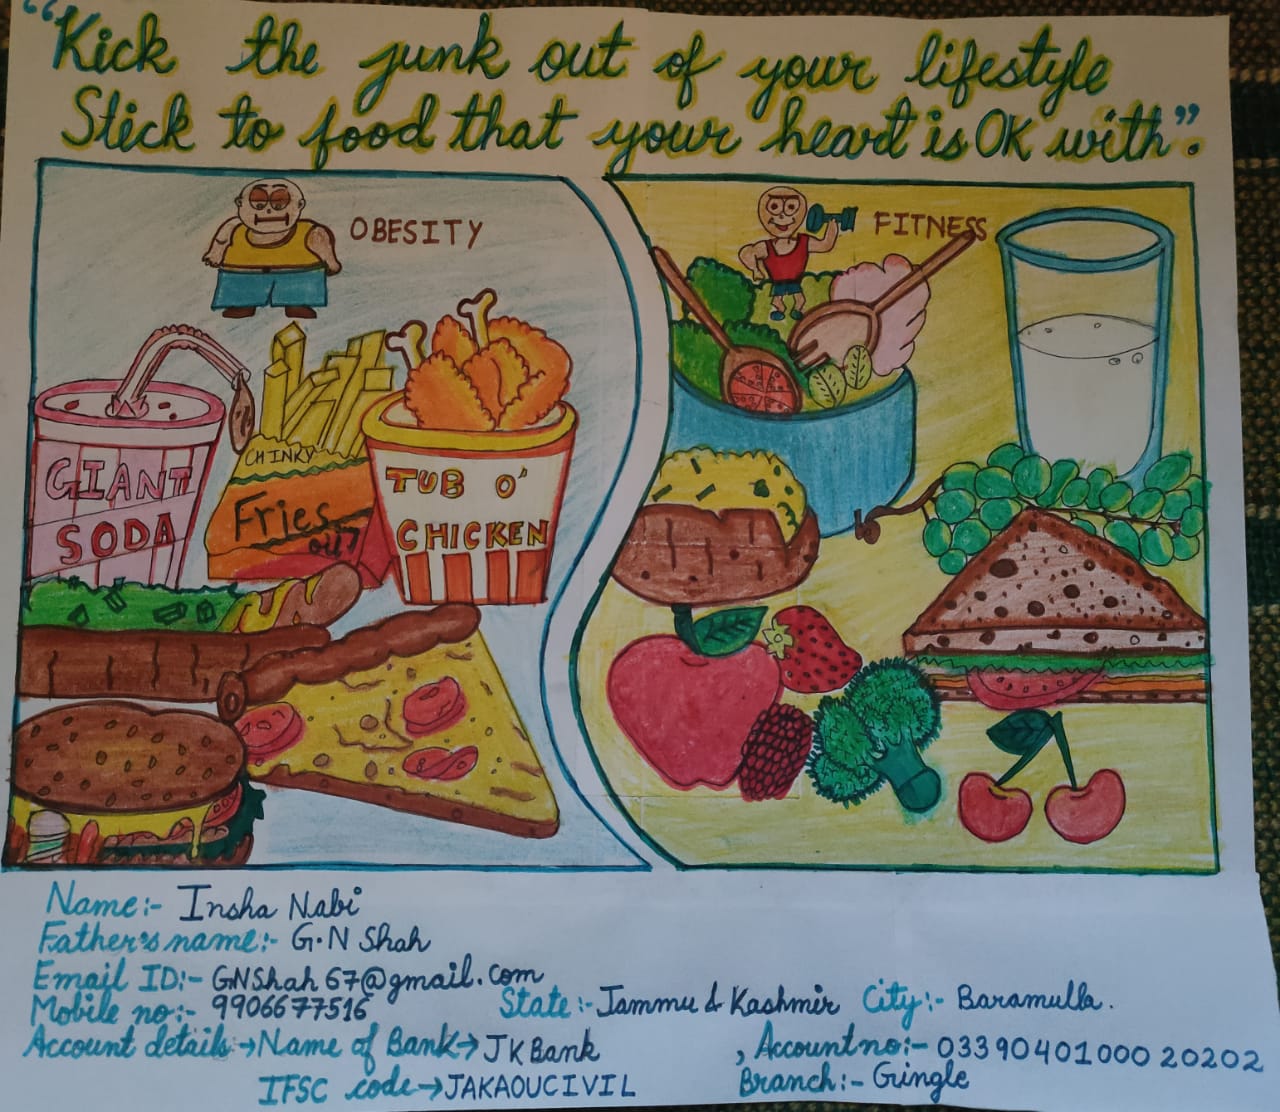 “Kick the junk out of your lifestyle
Stick to food that your heart is OK with”.
OBESITY
FITNESS
GIANT
SODA
CHINKY
Fries
TUB O'
CHICKEN
Name:- Insha Nabi
Father's name:- G.N Shah
Email ID:- GNShah67@gmail.com
Mobile no:- 9906677516 State:- Jammu & Kashmir City:- Baramulla.
Account details → Name of Bank → JK Bank , Account no:- 0339040100020202
IFSC code → JAKAOUCIVIL Branch:- Gringle